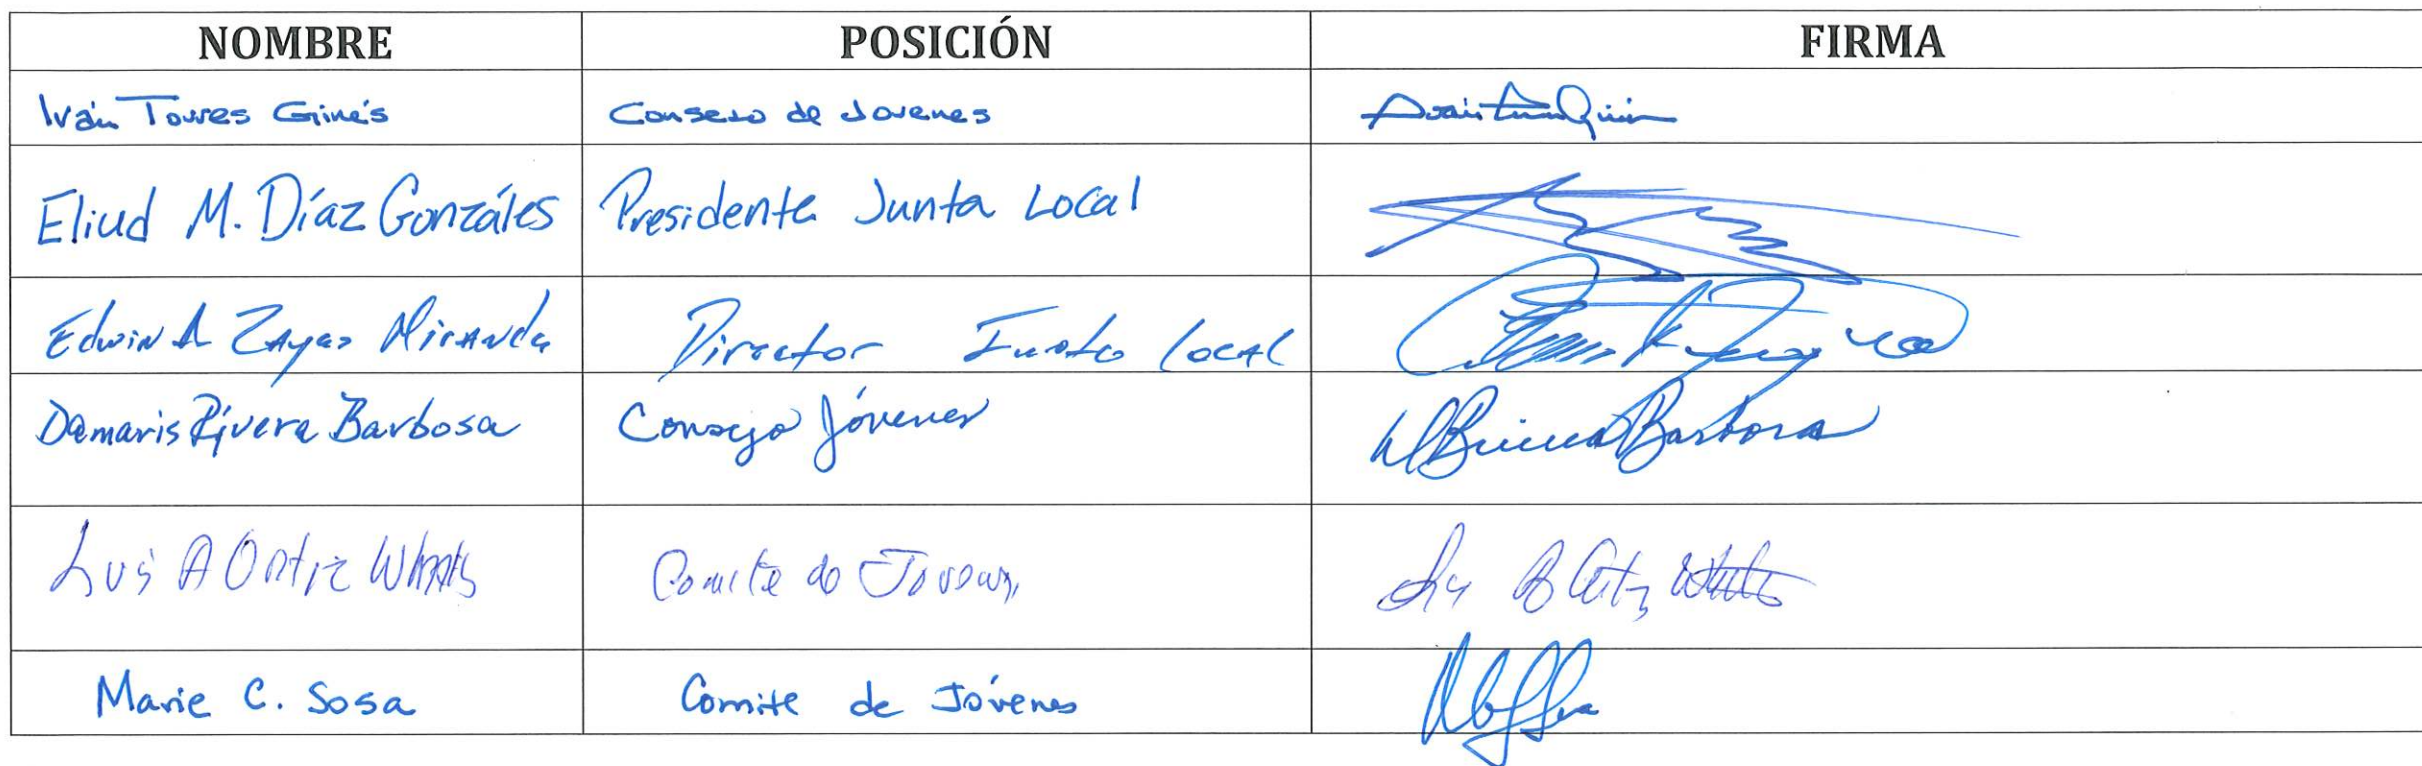 NOMBRE POSICIÓN FIRMA
Iván Torres Ginés Consejo de Jovenes
Eliud M. Díaz Gonzáles Presidente Junta Local
Edwin A Zayas Miranda Director Junta Local
Damaris Rivera Barbosa Consejo Jóvenes Rivera Barbosa
Luis A Ortiz Comite de Jovenes
Marie C. Sosa Comite de Jóvenes